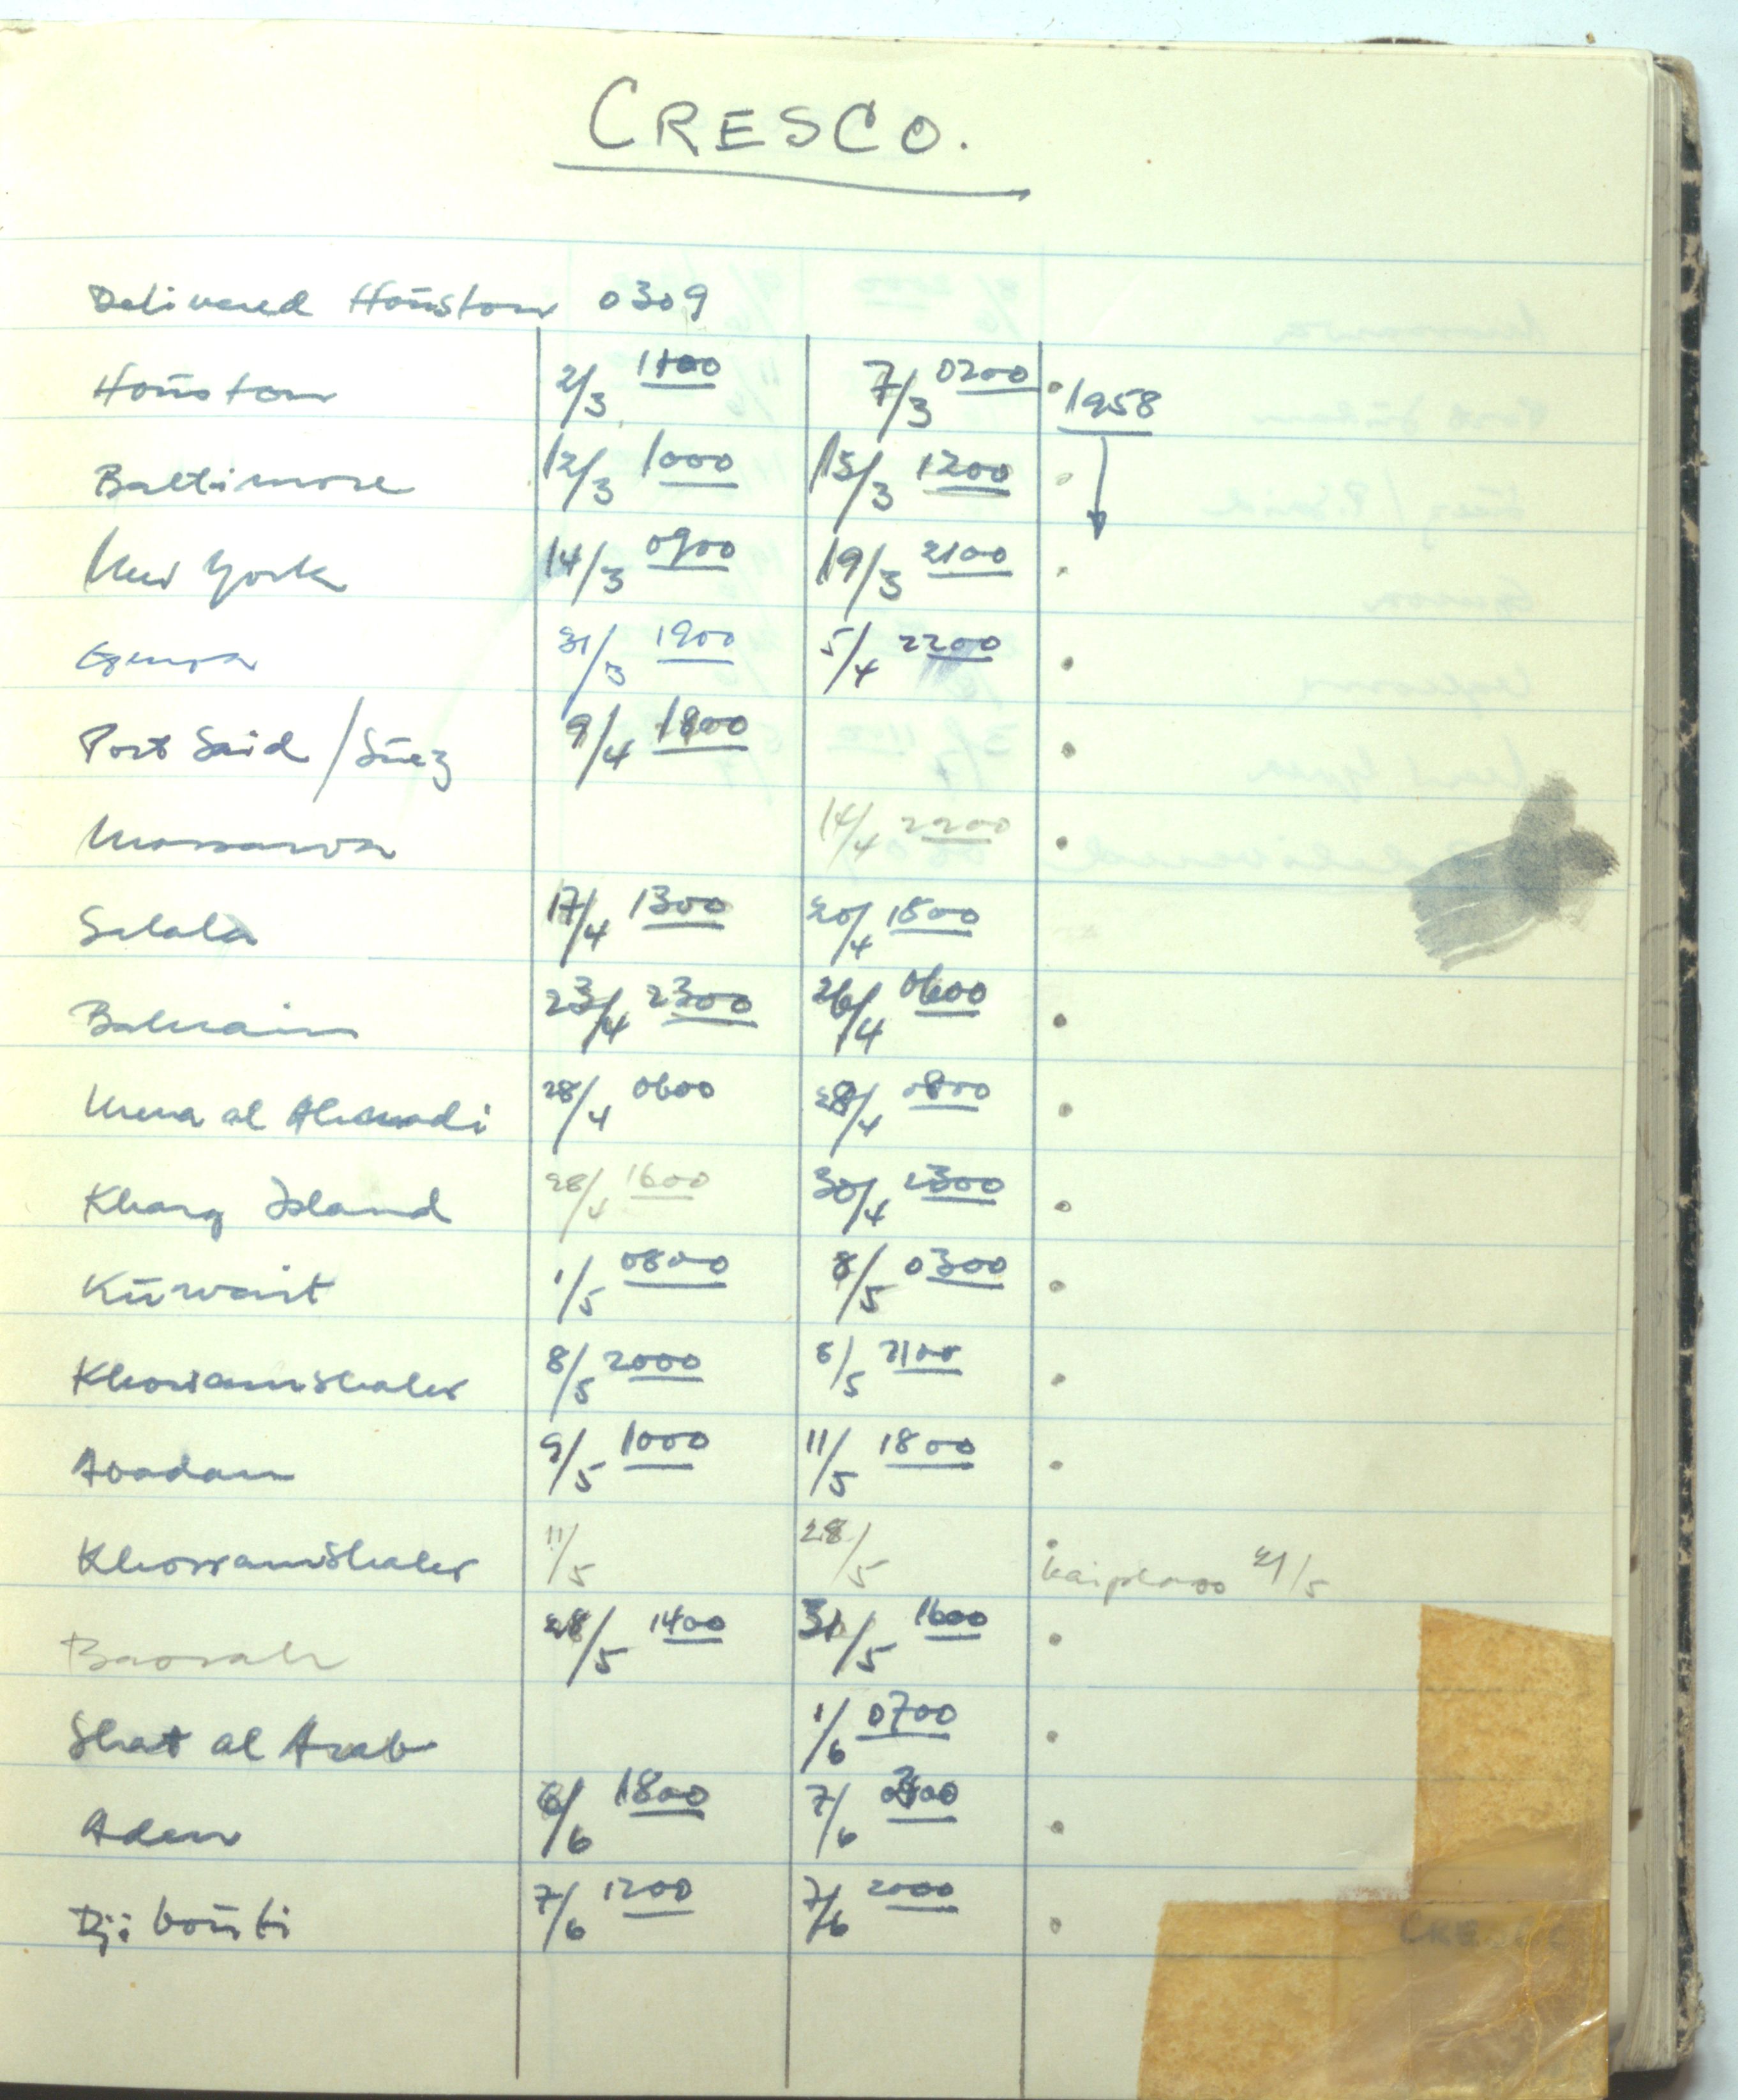 CRESCO.
Delivered Houston 0309
Houston 2/3 1100 7/3 0200 1958
Baltimore 12/3 1000 15/3 1200
New York 14/3 0900 19/3 2100
Genoa 31/3 1900 5/4 2200
Port Said / Suez 9/4 1800
Massawa 14/4 2200
Salala 17/4 1300 20/4 1500
Bahrain 23/4 2300 26/4 0600
Mena al Ahmadi 28/4 0600 28/4 0800
Kharg Island 28/4 1600 30/4 2300
Kuwait 1/5 0800 8/5 0300
Khorramshahr 8/5 2000 8/5 2100
Abadan 9/5 1000 11/5 1800
Khorramshahr 11/5 28/5 kaiplass 21/5
Basrah 28/5 1400 31/5 1600
Shat al Arab 1/6 0700
Aden 6/6 1800 7/6
Djibouti 7/6 1200 7/6 2000
CRESCO